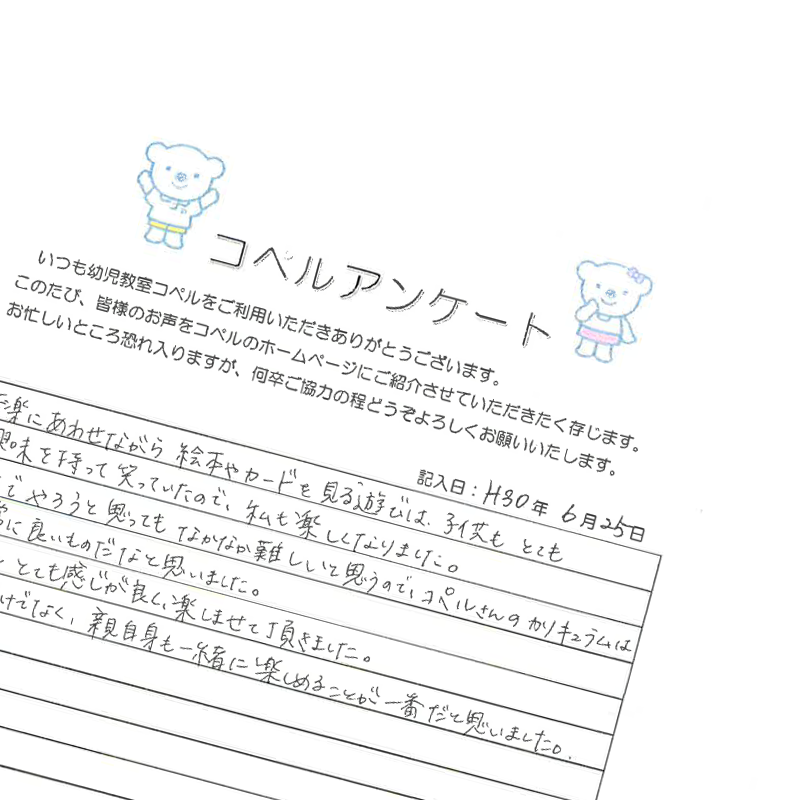 コペルアンケート
いつも幼児教室コペルをご利用いただきありがとうございます。
このたび、皆様のお声をコペルのホームページにご紹介させていただきたく存じます。
お忙しいところ恐れ入りますが、何卒ご協力の程どうぞよろしくお願いいたします。
記入日：H30年 6月25日
楽にあわせながら 絵本やカードを見る遊びは、子供も とても
興味を持って 笑っていたので、私も楽しくなりました。
でやろうと思っても なかなか難しいと思うので、コペルさんの カリキュラムは
に良いものだなと思いました。
とても感じが良く、楽しませて頂きました。
けでなく、親自身も一緒に楽しめることが 一番だと思いました。